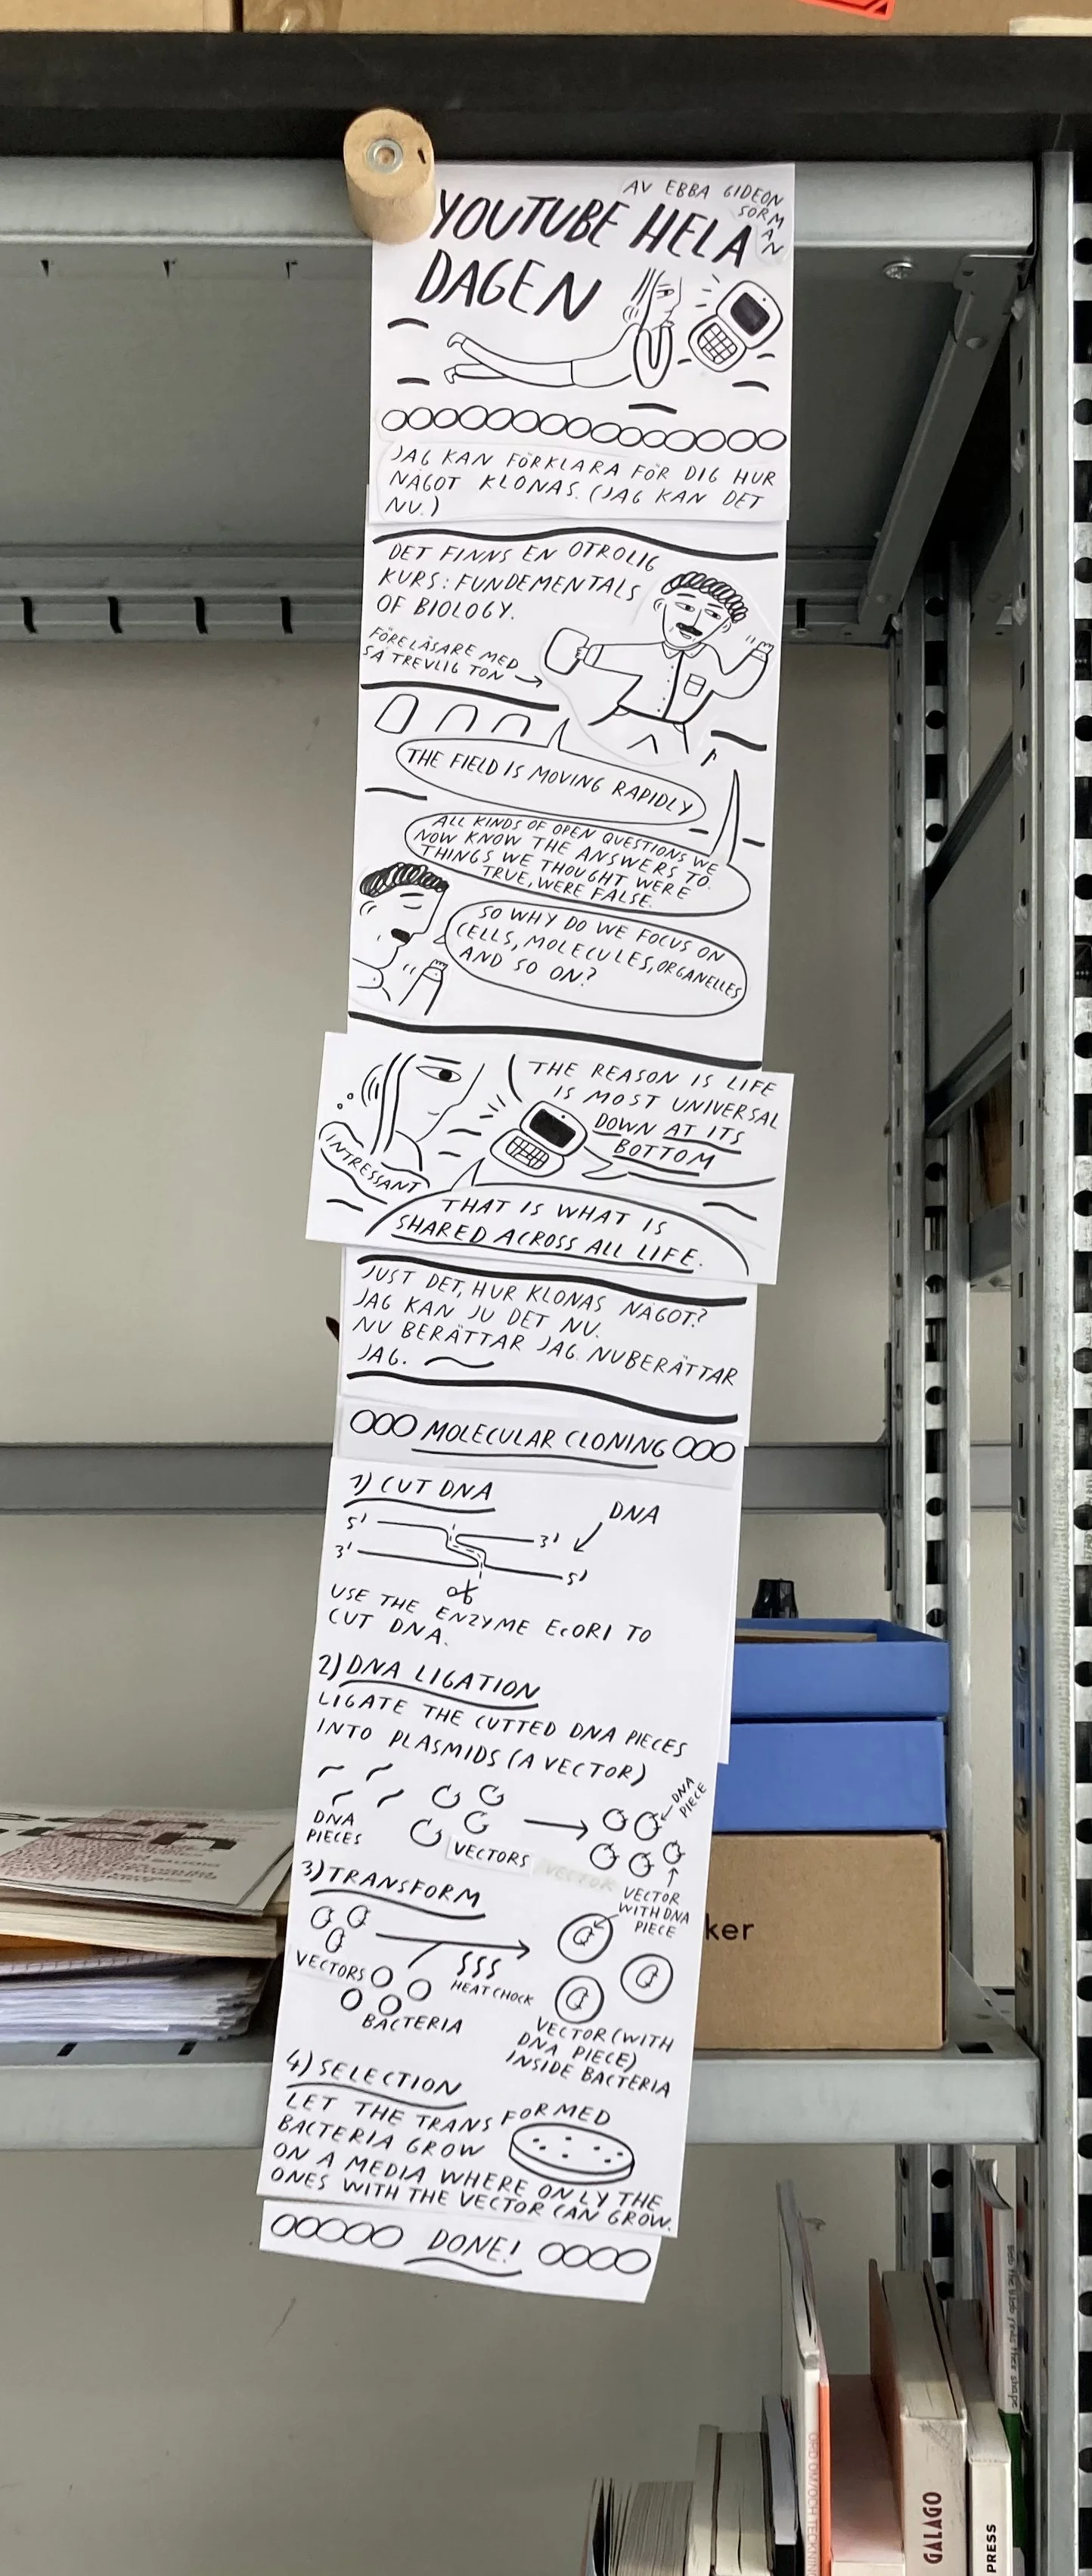 AV EBBA GIDEON
SÖRMAN
YOUTUBE HELA
DAGEN
JAG KAN FÖRKLARA FÖR DIG HUR
NÅGOT KLONAS. (JAG KAN DET
NU.)
DET FINNS EN OTROLIG
KURS: FUNDEMENTALS
OF BIOLOGY.
FÖRELÄSARE MED
SÅ TREVLIG TON
THE FIELD IS MOVING RAPIDLY
ALL KINDS OF OPEN QUESTIONS WE
NOW KNOW THE ANSWERS TO.
THINGS WE THOUGHT WERE
TRUE, WERE FALSE.
SO WHY DO WE FOCUS ON
CELLS, MOLECULES, ORGANELLES
AND SO ON?
THE REASON IS LIFE
IS MOST UNIVERSAL
DOWN AT ITS
BOTTOM
INTRESSANT
THAT IS WHAT IS
SHARED ACROSS ALL LIFE.
JUST DET, HUR KLONAS NÅGOT?
JAG KAN JU DET NU.
NU BERÄTTAR JAG. NU BERÄTTAR
JAG.
MOLECULAR CLONING
1) CUT DNA
DNA
5' 3'
3' 5'
USE THE ENZYME EcORI TO
CUT DNA.
2) DNA LIGATION
LIGATE THE CUTTED DNA PIECES
INTO PLASMIDS (A VECTOR)
DNA
PIECE
DNA
PIECES
VECTORS
VECTOR
VECTOR
WITH DNA
PIECE
3) TRANSFORM
VECTORS
HEAT CHOCK
BACTERIA
VECTOR (WITH
DNA PIECE)
INSIDE BACTERIA
4) SELECTION
LET THE TRANSFORMED
BACTERIA GROW
ON A MEDIA WHERE ONLY THE
ONES WITH THE VECTOR CAN GROW.
DONE!
ker
GALAGO
PRESS